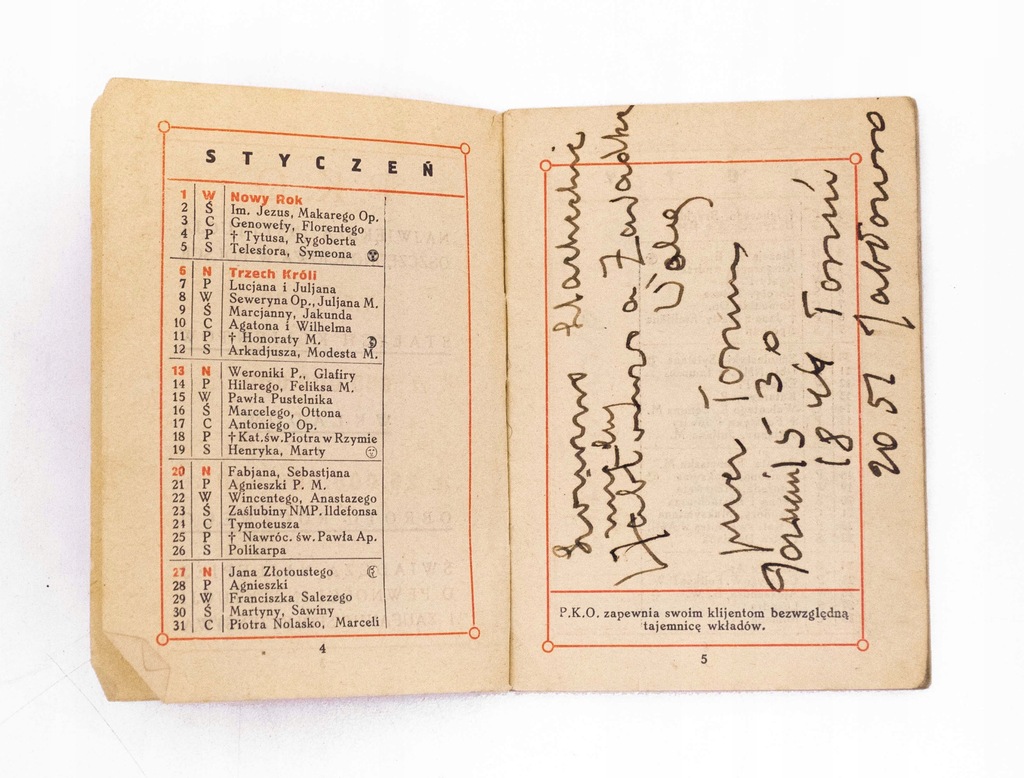 STYCZEŃ
1 W Nowy Rok
2 Ś Im. Jezus, Makarego Op.
3 C Genowefy, Florentego
4 P † Tytusa, Rygoberta
5 S Telesfora, Symeona
6 N Trzech Króli
7 P Lucjana i Juljana
8 W Seweryna Op., Juljana M.
9 Ś Marcjanny, Jakunda
10 C Agatona i Wilhelma
11 P † Honoraty M.
12 S Arkadjusza, Modesta M.
13 N Weroniki P., Glafiry
14 P Hilarego, Feliksa M.
15 W Pawła Pustelnika
16 Ś Marcelego, Ottona
17 C Antoniego Op.
18 P † Kat. św. Piotra w Rzymie
19 S Henryka, Marty
20 N Fabjana, Sebastjana
21 P Agnieszki P. M.
22 W Wincentego, Anastazego
23 Ś Zaślubiny NMP. Ildefonsa
24 C Tymoteusza
25 P † Nawróc. św. Pawła Ap.
26 S Polikarpa
27 N Jana Złotoustego
28 P Agnieszki
29 W Franciszka Salezego
30 Ś Martyny, Sawiny
31 C Piotra Nolasko, Marceli
4
między
Jabłonowo a Zawadką
Wałeg
przez Toruń
Poznań 15-30
18 44 Toruń
20 51 Jabłonowo
P.K.O. zapewnia swoim klijentom bezwzględną
tajemnicę wkładów.
5